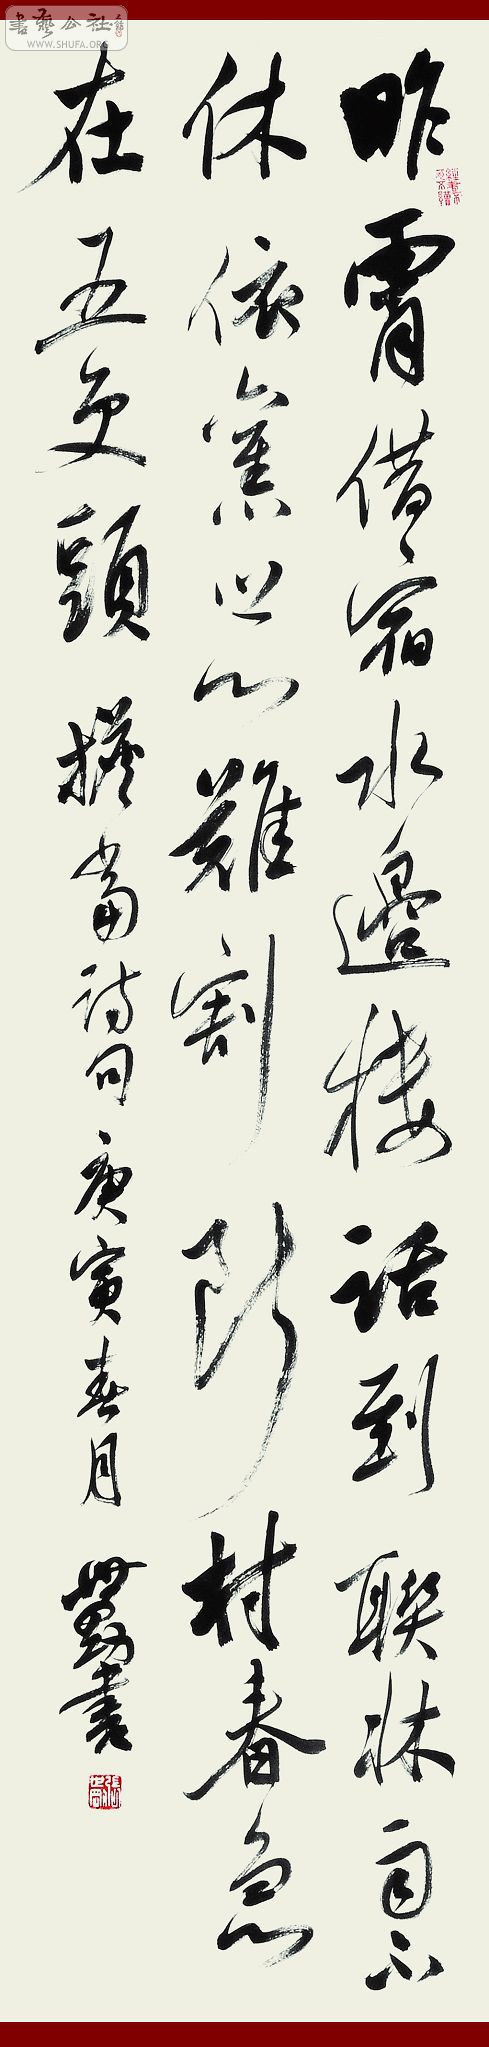 書藝公社
WWW.SHUFA.ORG
昨宵借宿水邊樓話到聯牀自不
休依舊世心難割斷村舂急
在五更頭 擔當詩句庚寅春月 世書